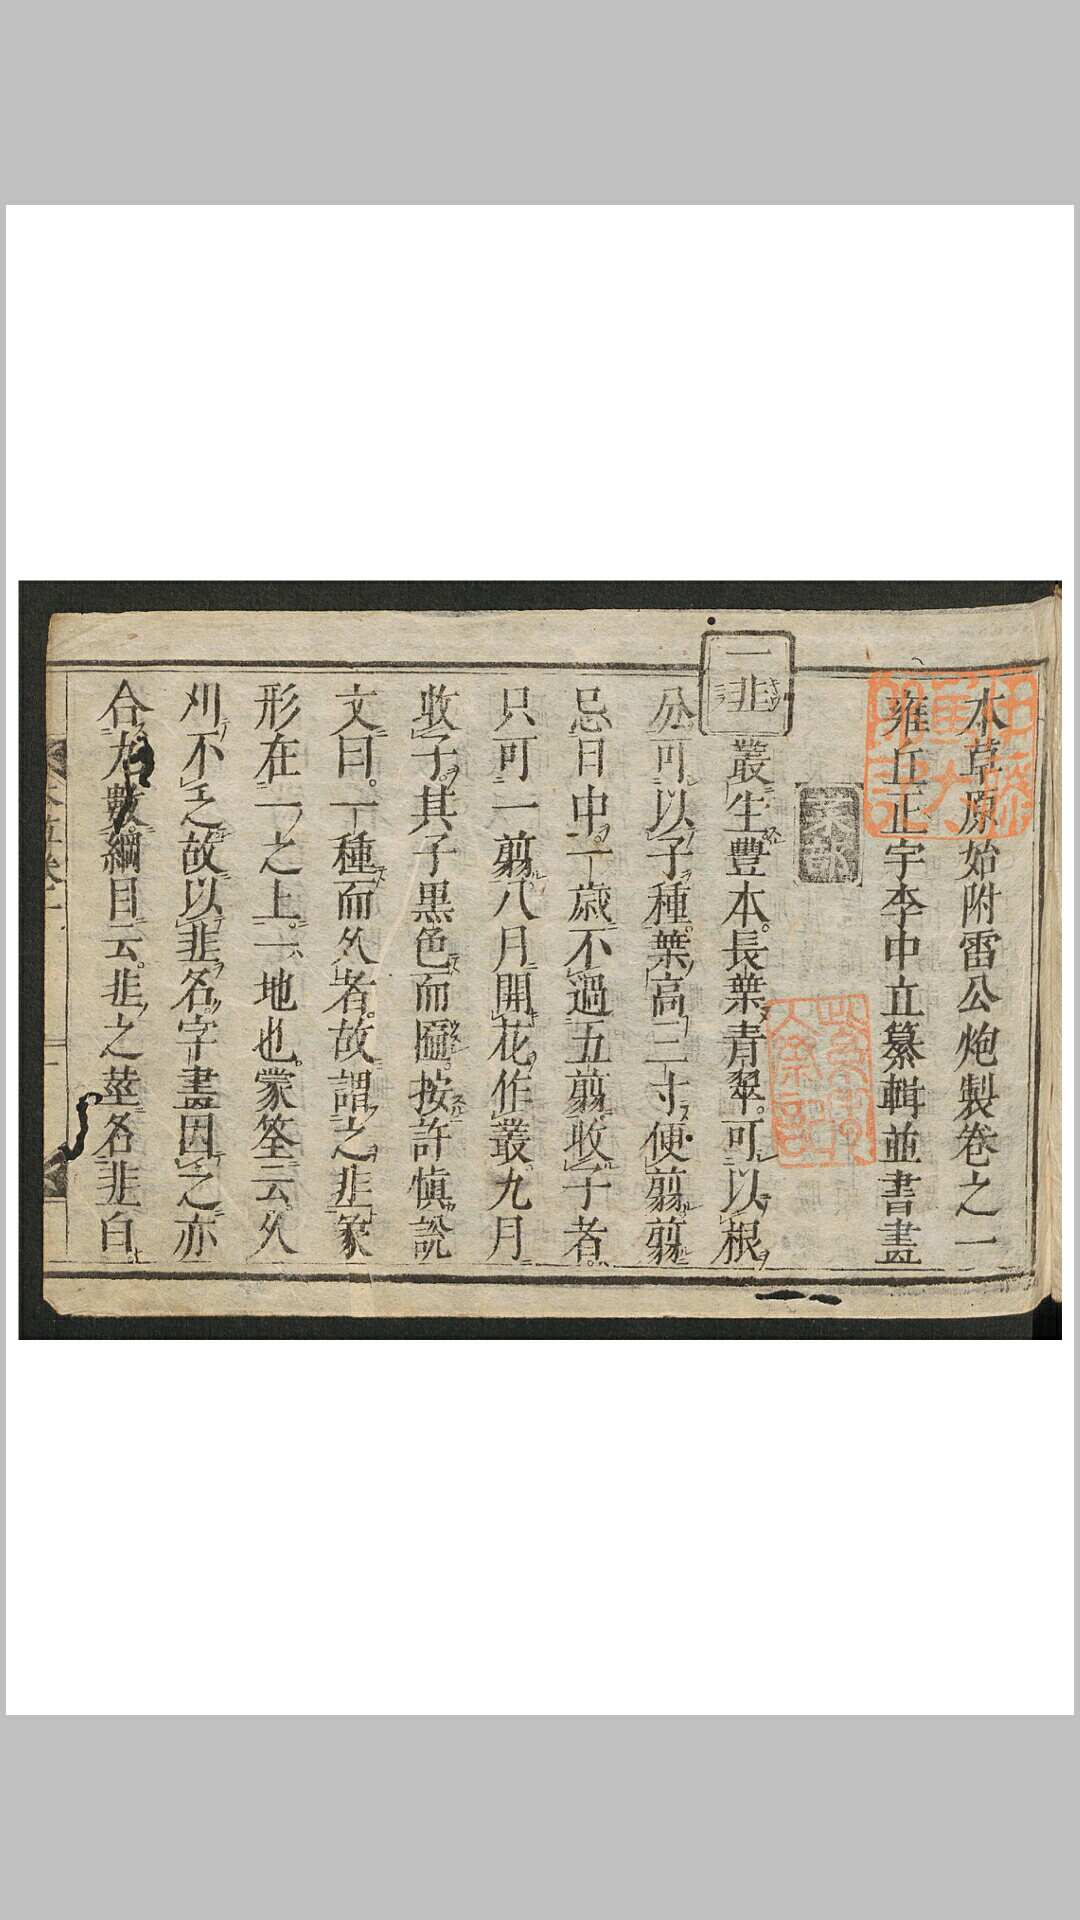 本草原始附雷公炮製卷之一
雍丘正宇李中立纂輯並書畫
菜部
一韭
叢生豐本長葉青翠可以根
分可以子種葉高三寸便翦翦
忌日中一歲不過五翦收子者
只可一翦八月開花作叢九月
收子其子黒色而匾按許慎說
文曰一種而久者故謂之韭篆
形在一之上一地也蒙筌云久
刈不乏故以韭名字畫因之亦
合九數綱目云韭之莖名韭白